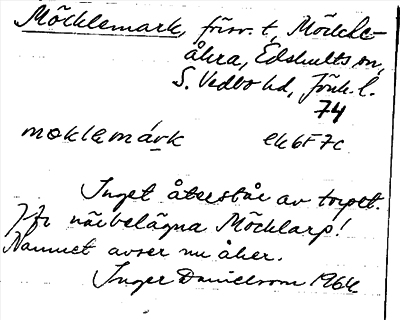 Möcklemark, förr. t, Möckle-
åkra, Edshults sn,
S. Vedbo hd, Jönk. l.
74
moklemárk ek 6F7c
Inget återstår av torpet.
Jfr närbelägna Möcklarp!
Namnet avser nu åker.
Inger Danielsson 1964